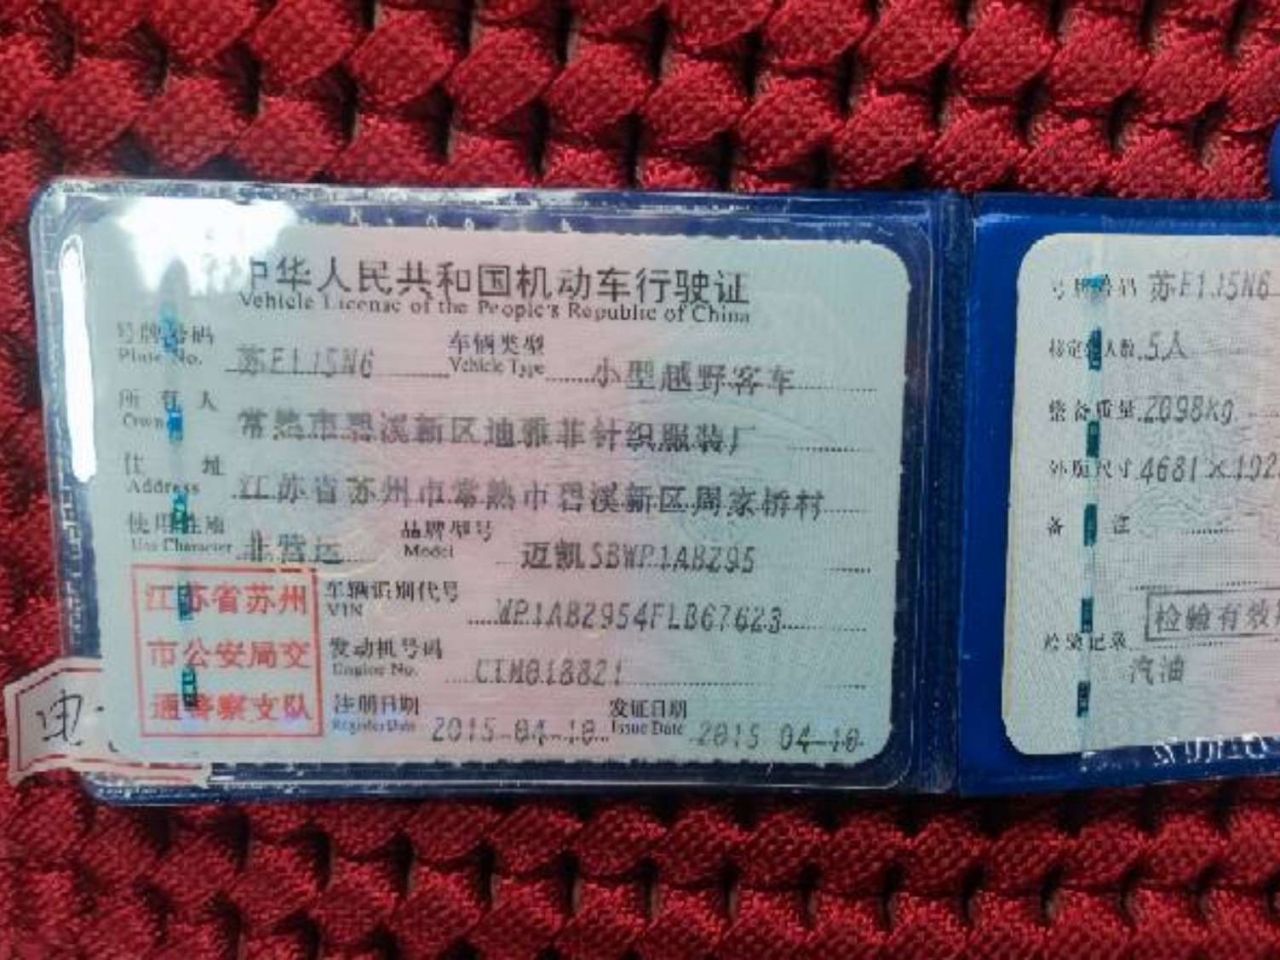 中华人民共和国机动车行驶证
Vehicle License of the People's Republic of China
号牌号码 苏E1J5N6 车辆类型 小型越野客车
Plate No. Vehicle Type
所有人 常熟市碧溪新区迪雅菲针织服装厂
Owner
住址 江苏省苏州市常熟市碧溪新区周家桥村
Address
使用性质 非营运 品牌型号 迈凯SBWP1AB295
Use Character Model
江苏省苏州
市公安局交
通警察支队
车辆识别代号 WP1AB2954FLB67623
VIN
发动机号码 CTM018821
Engine No.
注册日期 2015-04-10 发证日期 2015-04-10
Register Date Issue Date
电
号牌号码 苏E1J5N6
核定载人数 5人
整备质量 2098kg
外廓尺寸 4681×192
备注
检验有效
检验记录
汽油